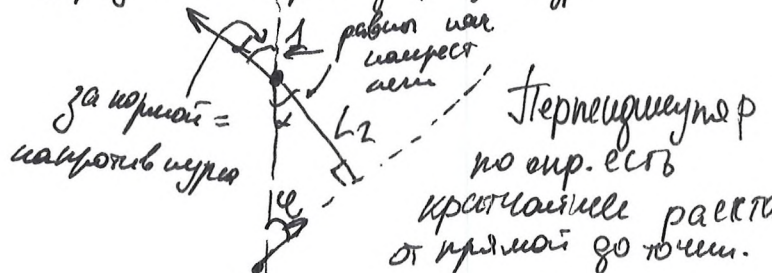 1
равны как
накрест
лежа
за кормой =
напротив курса
α
L2
φ
Перпендикуляр
по опр. есть
кратчайшее расст
от прямой до точки.